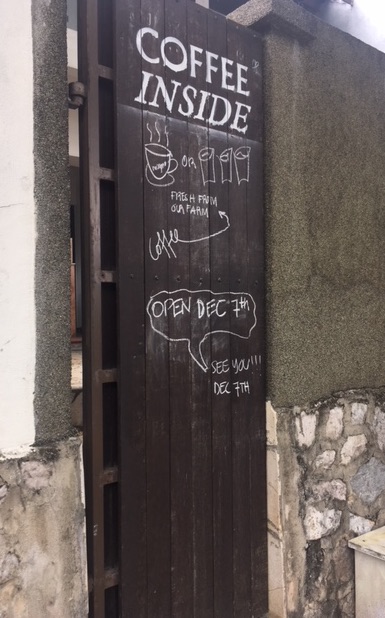 COFFEE
INSIDE
OR
FRESH FROM
OUR FARM
coffee
OPEN DEC 7th
SEE YOU!!!
DEC 7TH